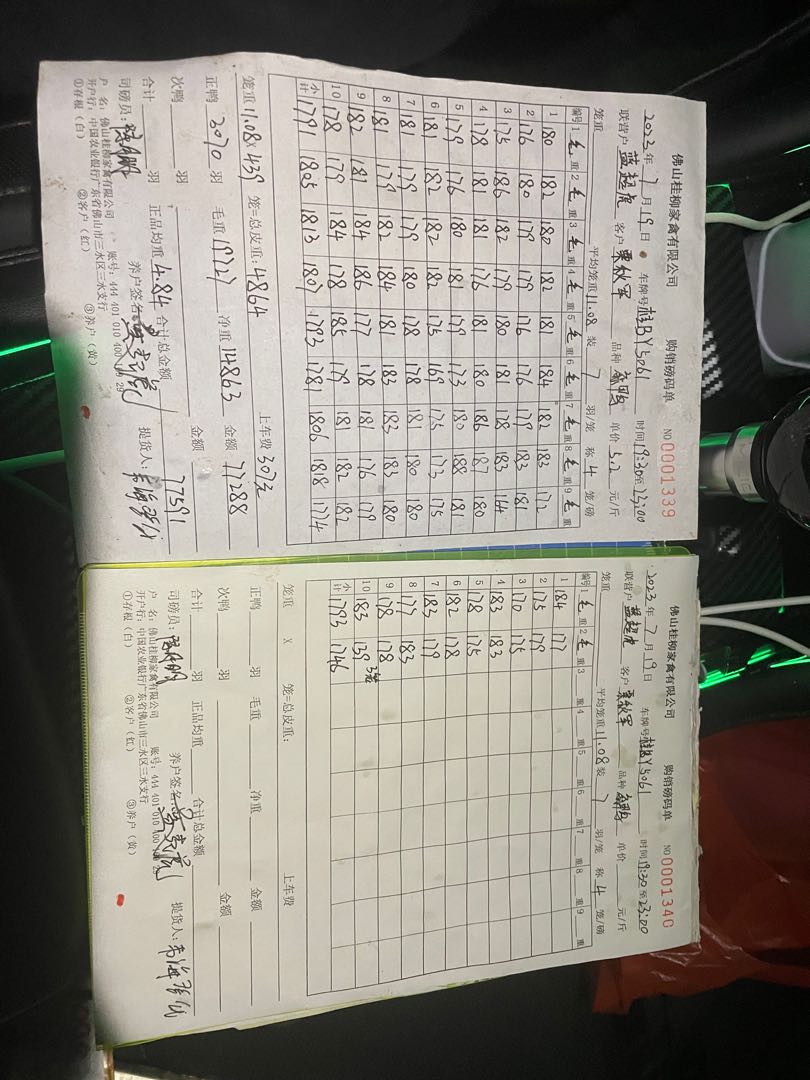 佛山桂柳家禽有限公司 购销磅码单
NO 0001339
2023年7月19日 车牌号桂BY5061 时间19:30至23:00
联营户 蓝超虎 客户 栗秋军 品种 单价 5.2 元/斤
笼重 平均笼重11.08 装 7 羽/笼 称 4 笼/磅
编号 1毛重 2毛重 3毛重 4毛重 5毛重 6毛重 7毛重 8毛重 9毛重
1 180 182 180 182 181 184 182 183 172
2 176 180 179 179 176 176 179 183 181
3 175 186 182 179 180 181 178 183 164
4 178 181 181 176 181 180 186 187 180
5 179 176 180 181 179 173 180 188 181
6 181 182 182 182 175 169 175 173 175
7 181 179 179 180 178 178 181 180 180
8 181 179 182 184 181 183 183 183 180
9 182 181 184 186 177 178 181 176 179
10 178 179 184 178 185 179 181 182 182
小计 1791 1805 1813 1807 1793 1781 1806 1818 1774
笼重11.08×439 笼=总皮重:4864 上车费303元
正鸭 3070 羽 毛重19727 净重14863 金额 77288
次鸭 羽 金额
合计 羽 正品均重4.84 合计总金额 77591
司磅员: 养户签名 提货人:
户 名:佛山桂柳家禽有限公司 账号:444 401 010 400 29
开户行:中国农业银行广东省佛山市三水区三水支行
①存根(白) ②客户(红) ③养户(黄)
佛山桂柳家禽有限公司 购销磅码单
NO 0001340
2023年7月19日 车牌号桂BY5061 时间19:30至23:00
联营户 蓝超虎 客户 栗秋军 品种 单价 元/斤
笼重 平均笼重11.08 装 7 羽/笼 称 4 笼/磅
编号 1毛重 2毛重 3 重 4 重 5 重 6 重 7 重 8 重 9 重
1 184 177
2 175 179
3 170 175
4 183 183
5 178 175
6 182 178
7 183 179
8 177 183
9 178 178
10 183 139 3笼
小计 1793 1746
笼重 X 笼=总皮重: 上车费
正鸭 羽 毛重 净重 金额
次鸭 羽 金额
合计 羽 正品均重 合计总金额
司磅员: 养户签名 提货人:
户 名:佛山桂柳家禽有限公司 账号:444 401 010 400 29
开户行:中国农业银行广东省佛山市三水区三水支行
①存根(白) ②客户(红) ③养户(黄)